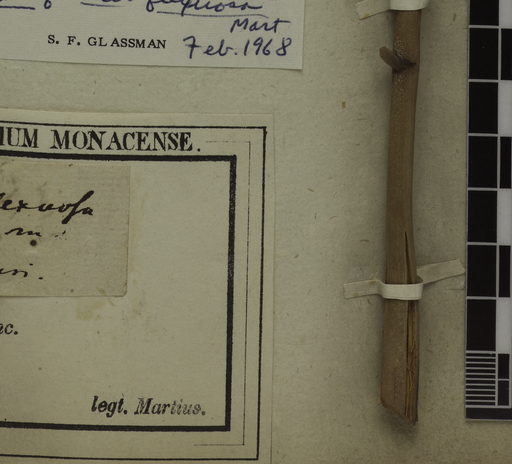 flexuosa
Mart
S. F. GLASSMAN Feb. 1968
IUM MONACENSE.
lexuosa
m
legt. Martius.